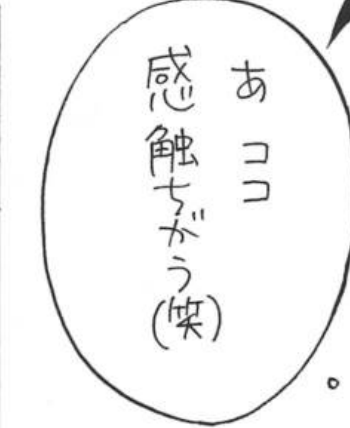 あ ココ
感触ちがう(笑)